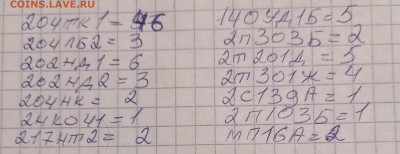 COINS.LAVE.RU
204ТК1 = 46
204ЛБ2 = 3
202НД1 = 6
202НД2 = 3
204НК = 2
24КО41 = 1
217НТ2 = 2
140УД1Б = 5
2П303Б = 2
2Т201Д = 5
2Т301Ж = 4
2С139А = 1
2П103Б = 1
МП16А = 2